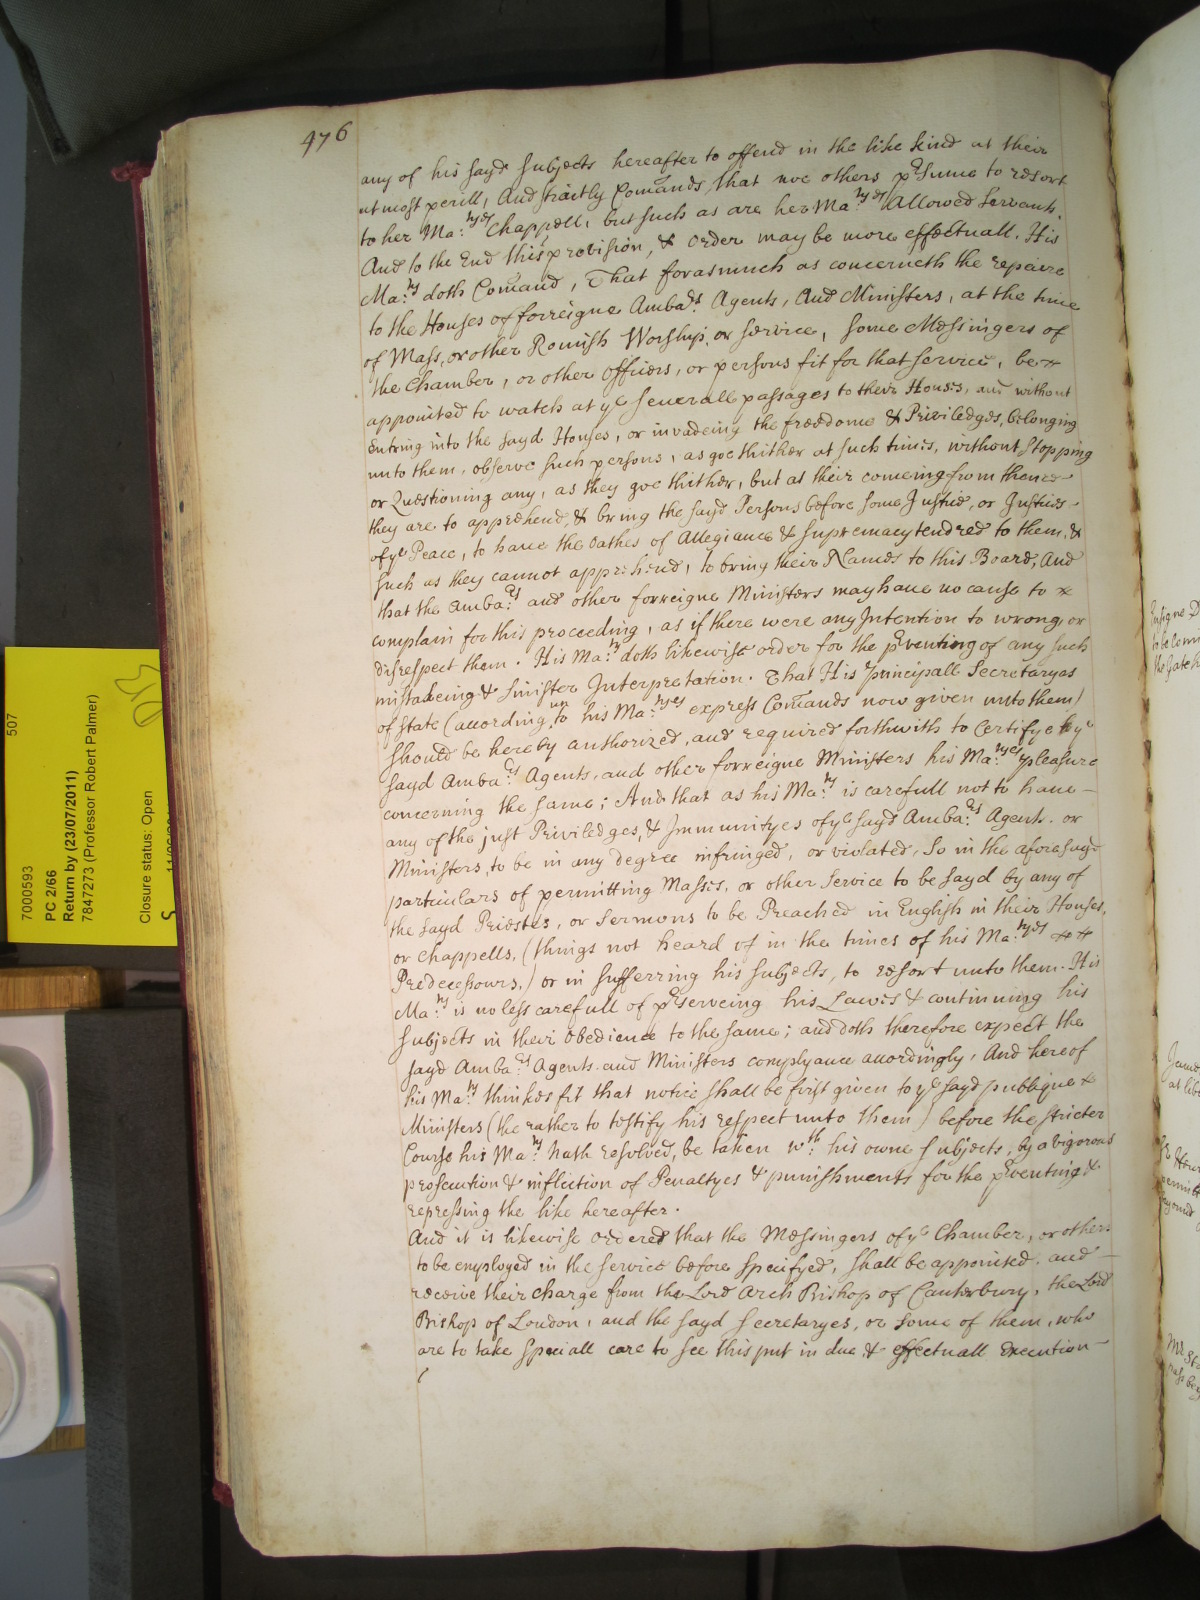 476
any of his sayd Subjects hereafter to offend in the like kind at their
utmost perill, And straitly Comands, that noe others p^rsume to resort
to her Ma:^tyes Chappell, but such as are her Ma:^tyes Allowed Servants.
And to the End this provision, & order may be more effectuall. His
Ma:^ty doth Comand, That forasmuch as concerneth the repaire
to the Houses of forreigne Amba:^rs Agents, And Ministers, at the time
of Mass, or other Romish Worship, or service, some Messingers of
the Chamber, or other Officers, or persons fit for that service, be
appointed to watch at y^e severall passages to their Houses, and without
Entring into the sayd Houses, or invadeing the freedome & Priviledges, belonging
unto them, observe such persons, as goe thither at such times, without stopping
or Questioning any, as they goe thither, but at their comeing from thence
they are to apprehend, & bring the sayd Persons before some Justice, or Justices
of y^e Peace, to have the Oathes of Allegiance & Supremacy tendred to them, &
such as they cannot apprehend, to bring their Names to this Board, And
that the Amba:^rs and other forreigne Ministers may have no cause to
complain for this proceeding, as if there were any Intention to wrong, or
disrespect them. His Ma:^ty doth likewise order for the p^rventing of any such
mistakeing & sinister Interpretation. That His Principall Secretaryes
of State (according unto his Ma:^tyes express Comands now given unto them)
should be hereby authorized, and required forthwith to Certifye y^e
sayd Amba:^rs Agents, and other forreigne Ministers his Ma:^tyes pleasure
concerning the same; And that as his Ma:^ty is carefull not to have
any of the just Priviledges, & Immunityes of y^e sayd Amba:^rs Agents. or
Ministers, to be in any degree infringed, or violated, So in the aforesayd
particulars of permitting Masses, or other Service to be sayd by any of
the sayd Priestes, or Sermons to be Preached in English in their Houses,
or Chappells, (things not heard of in the times of his Ma:^tyes
Predecessours,) or in sufferring his Subjects, to resort unto them. His
Ma:^ty is no less carefull of p^rserveing his Lawes & continuing his
Subjects in their obedience to the same; and doth therefore expect the
sayd Amba:^rs Agents and Ministers complyance accordingly, And hereof
his Ma:^ty thinkes fit that notice shall be first given to y^e sayd publique
Ministers (the rather to testify his respect unto them) before the stricter
Course his Ma:^ty hath resolved, be taken w:^th his owne Subjects, by a vigorous
prosecution & infliction of Penaltyes & punishments for the p^rventing &
repressing the like hereafter.
And it is likewise ordered that the Messingers of y^e Chamber, or others
to be employed in the service before specifyed, shall be appointed, and
receive their charge from the Lord Arch Bishop of Canterbury, the Lord
Bishop of London, and the sayd Secretaryes, or some of them, who
are to take speciall care to see this put in due & effectuall Execution
507
7000593
PC 2/66
Return by (23/07/2011)
7847273 (Professor Robert Palmer)
Closure status: Open